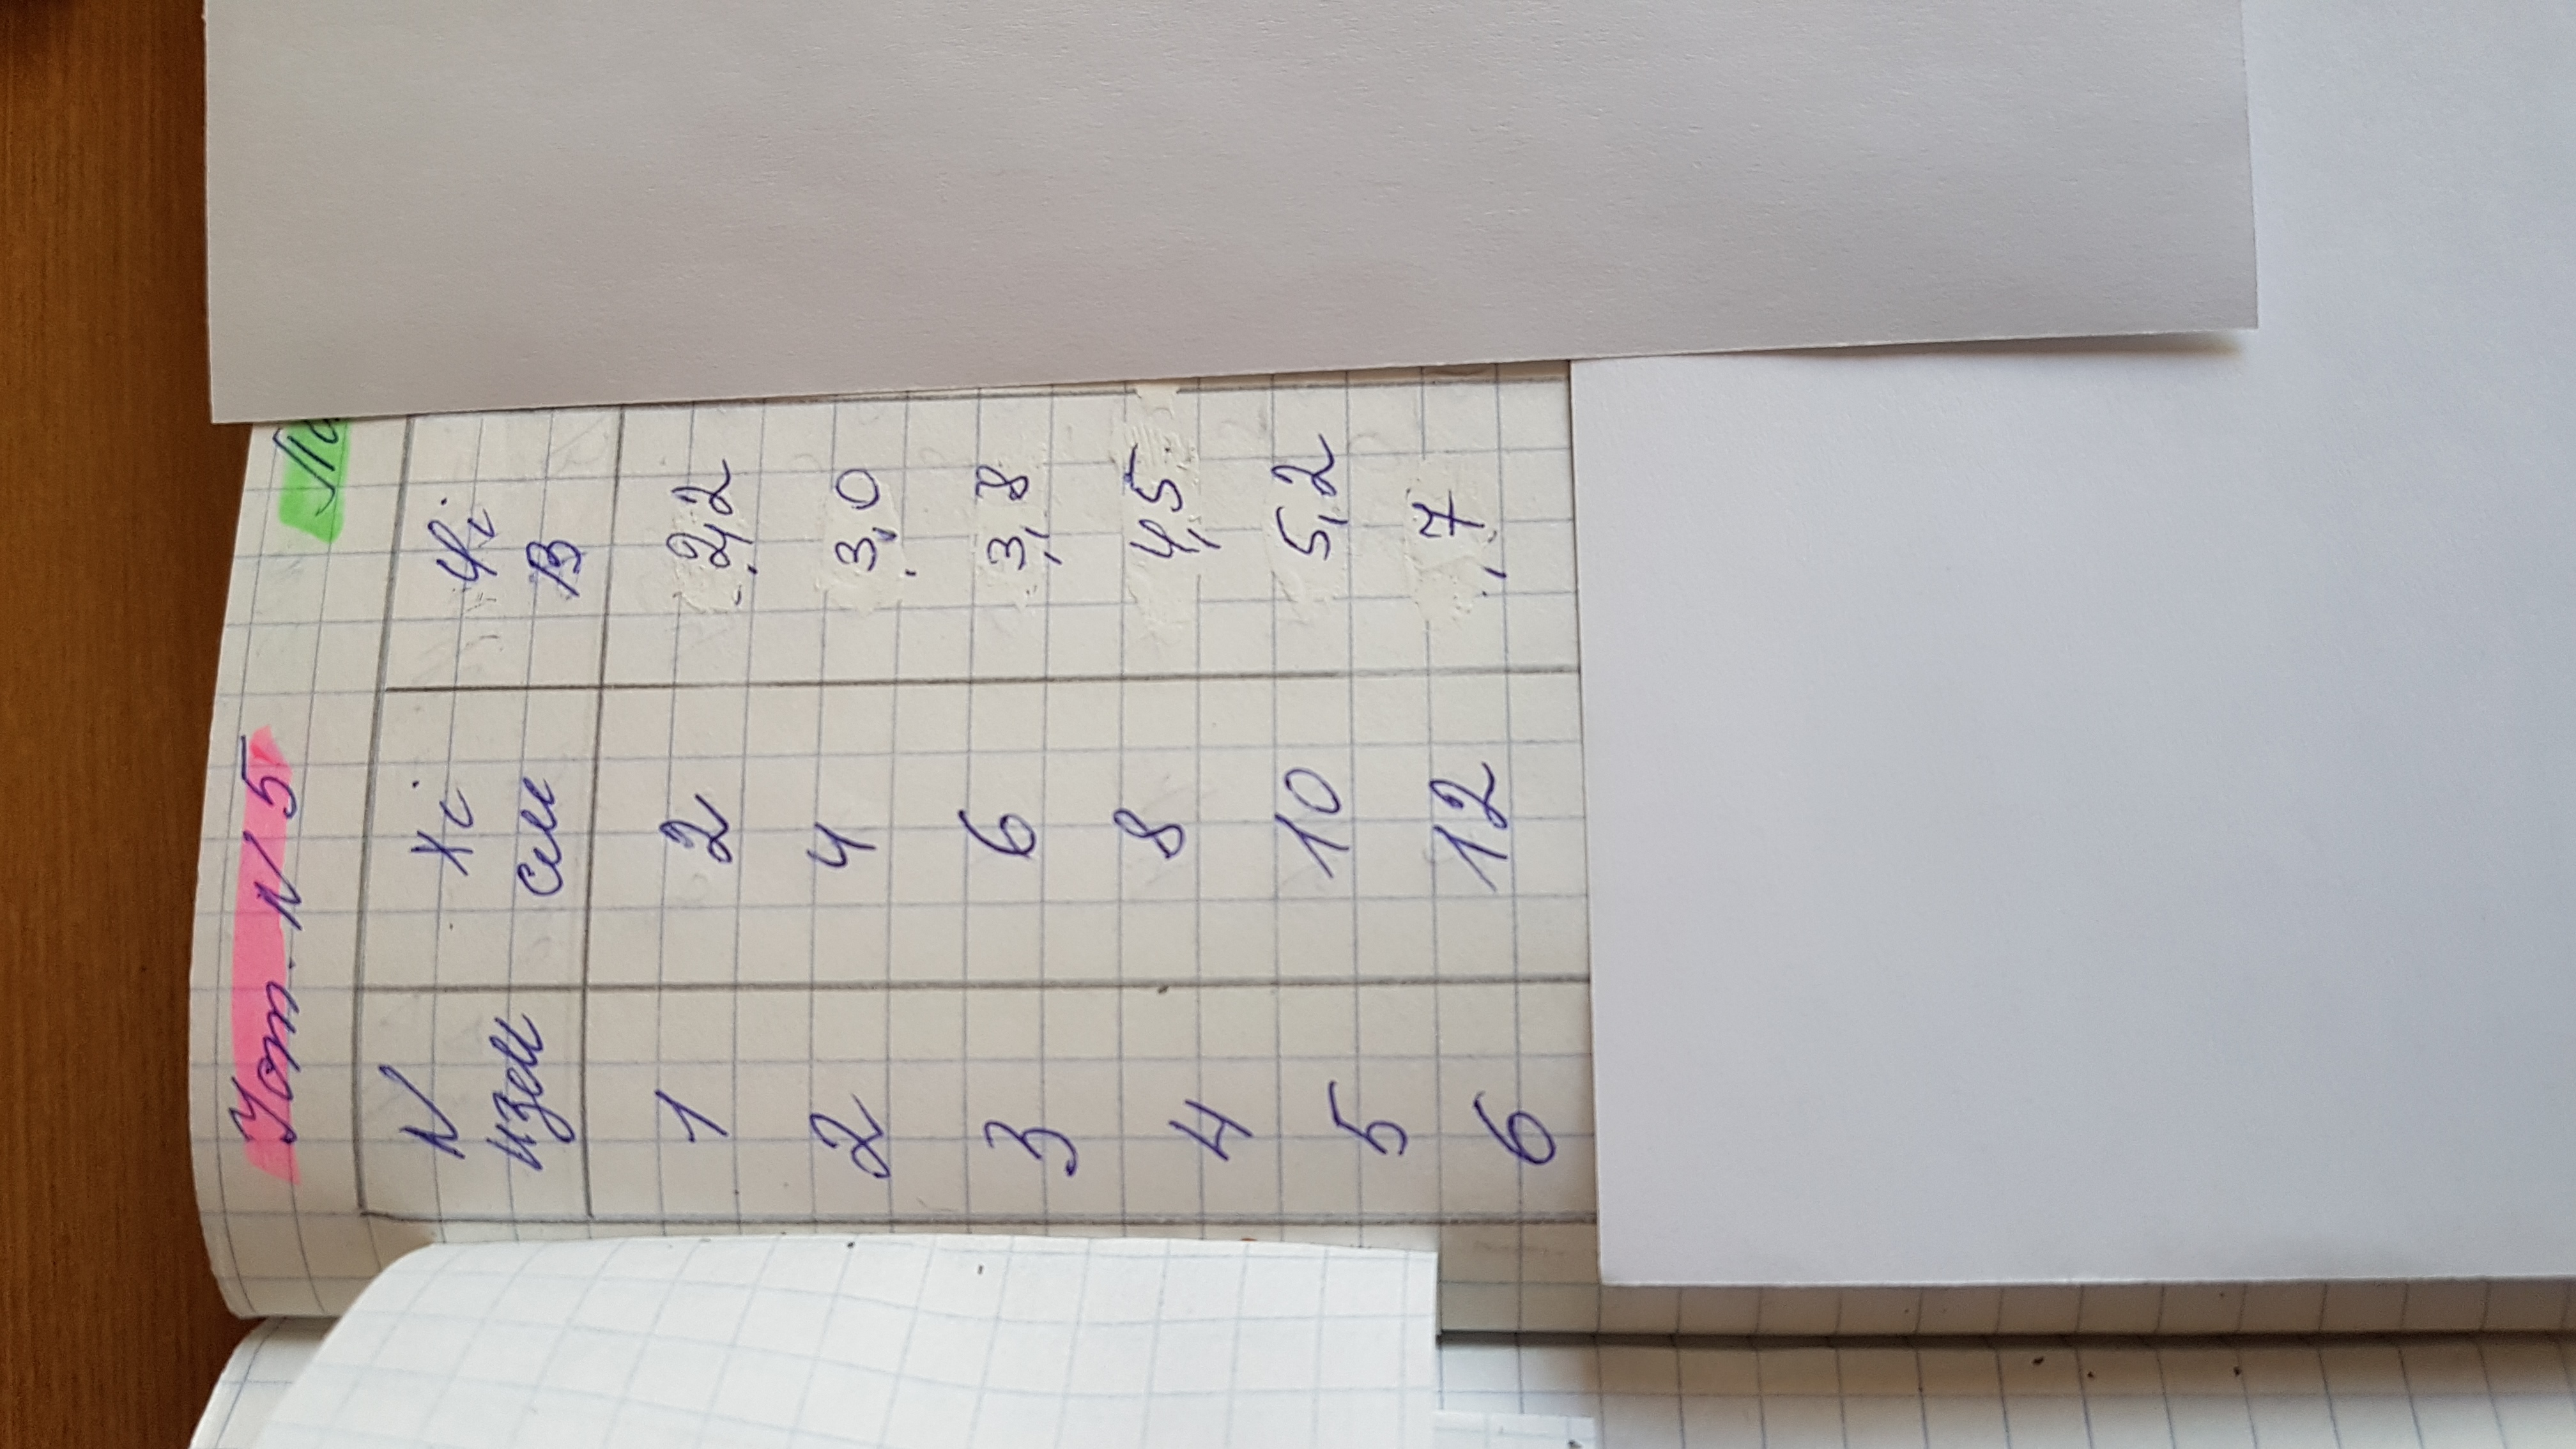 Уст. N 5
N изм Xi см φi В
1 2 2,2
2 4 3,0
3 6 3,8
4 8 4,5
5 10 5,2
6 12 7